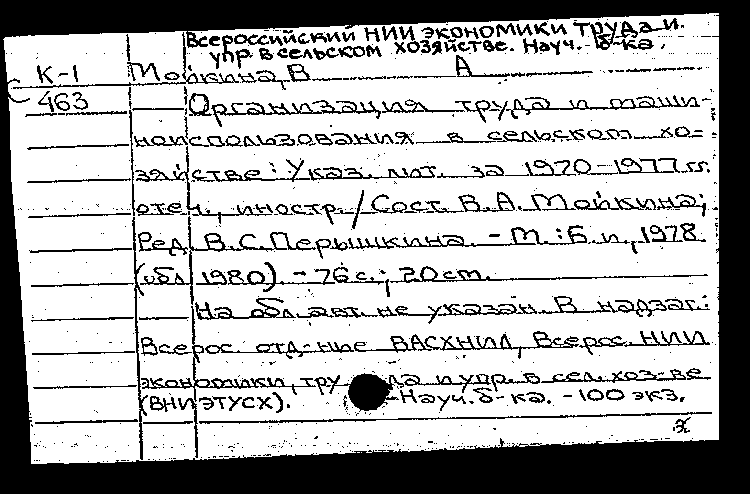 Всероссийский НИИ экономики труда и
упр. в сельском хозяйстве. Науч. б-ка.
К-1 Мойкина, В А
463 Организация труда и маши-
ноиспользования в сельском хо-
зяйстве: Указ. лит. за 1970-1977 гг.
отеч., иностр. / Сост. В.А. Мойкина;
Ред. В.С. Перышкина. - М.: Б.и., 1978
(обл. 1980). - 76 с.; 20 см.
На обл. авт. не указан. В надзаг.:
Всерос. отд-ние ВАСХНИЛ, Всерос. НИИ
экономики, труда и упр. в сел. хоз-ве
(ВНИЭТУСХ). -Науч. б-ка. - 100 экз.